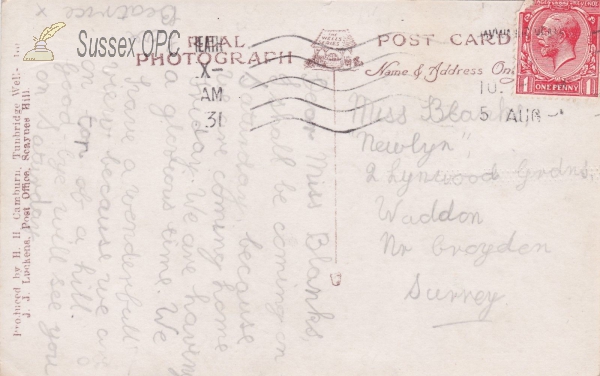 Sussex OPC
REAL
PHOTOGRAPH
THE
WELLS
SERIES
POST CARD
Name & Address On
HEATH
X-
AM
31
10.
5 AUG
1 ONE PENNY 1
Miss Blanks,
"Newlyn"
2 Lynwood Grdns,
Waddon
Nr Croydon
Surrey
Dear Miss Blanks,
I shall be coming on
Saturday because
we are coming home
day. We are having
a glorious time. We
have a wonderful
because we are
on top of a hill.
Good bye will see you
Beatrice x
Produced by H. H. Camburn, Tunbridge Wells
J. J. Luckens, Post Office, Scaynes Hill.